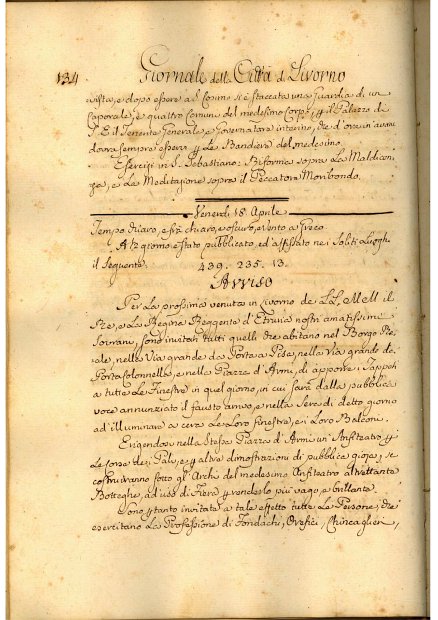 134 Giornale della Città di Livorno
vista, e dopo essere al Comune si è staccata una Guardia di un
Caporale, e quattro Comuni del medesimo Corpo, per il Palazzo di
S. E. il Tenente Generale e Governatore interino, che d'ora in avanti
dovrà sempre essere per le Bandiere del medesimo.
Esercizi in S. Sebastiano: Riforma sopra la Maldicen-
za, e la Meditazione sopra il Peccatore Moribondo.
Venerdì 18 Aprile
Tempo chiaro, e frà chiaro, e oscuro, e vento a Greco
A 12 giorno è stato pubblicato, ed affissato nei Soliti Luoghi
il seguente. 439. 235. 13.
Avviso
Per la prossima venuta in Livorno de LL. MM. il
Rè, e la Regina Reggente d'Etruria nostri amatissimi
Sovrani, sono invitati tutti quelli che abitano nel Borgo Re-
ale, nella Via grande da Porta a Pisa, nella Via grande da
Porta Colonnella, e nella Piazza d'Armi, di apporre i Tappeti
a tutte le Finestre in quel giorno, in cui sarà dalla pubblica
voce annunziato il fausto arrivo, e nella Sera di detto giorno
ad illuminare a cera le Loro finestre, e i Loro Balconi.
Erigendosi nella Stessa Piazza d'Armi un Anfiteatro per
le Corse dei Palj, e per altre dimostrazioni di pubblica gioja, si
costruiranno sotto gli Archi del medesimo Anfiteatro altrettante
Botteghe, ad uso di Fiera per renderlo più vago, e brillante.
Sono per tanto invitate a tale effetto tutte le Persone, che
esercitano la Professione di Fondachi, Orefici, Chincaglieri,